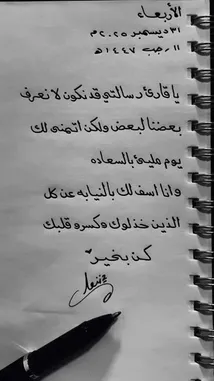 الأربعاء
٣١ ديسمبر ٢٠٢٥م
١١ رجب ١٤٤٧هـ
يا قارئ رسالتي قد نكون لا نعرف
بعضنا لبعض ولكن اتمنى لك
يوم مليئ بالسعاده
وانا اسف لك بالنيابه عن كل
الذين خذلوك وكسرو قلبك
كن بخير